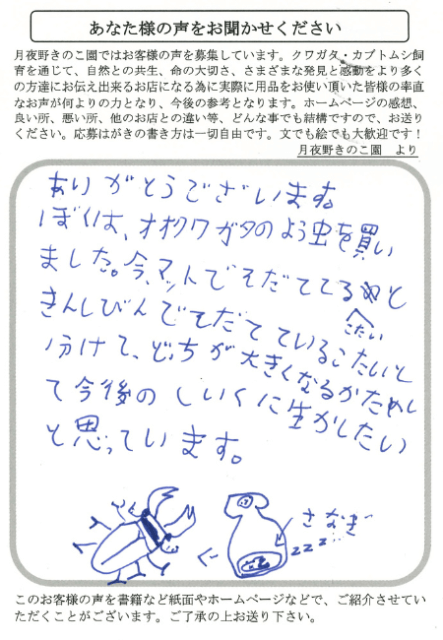 あなた様の声をお聞かせください
月夜野きのこ園ではお客様の声を募集しています。クワガタ・カブトムシ飼
育を通じて、自然との共生、命の大切さ、さまざまな発見と感動をより多く
の方達にお伝え出来るお店になる為に実際に用品をお使い頂いた皆様の率直
なお声が何よりの力となり、今後の参考となります。ホームページの感想、
良い所、悪い所、他のお店との違い等、どんな事でも結構ですので、お送り
ください。応募はがきの書き方は一切自由です。文でも絵でも大歓迎です！
月夜野きのこ園　より
ありがとうございます。
ぼくは、オオクワガタのよう虫を買い
ました。今、マットでそだててると
きんしびんでそだてているこたいと
こたい
分けて、どっちが大きくなるかためし
て今後のしいくに生かしたい
と思っています。
さなぎ
zzz
このお客様の声を書籍など紙面やホームページなどで、ご紹介させてい
ただくことがございます。ご了承の上お送り下さい。